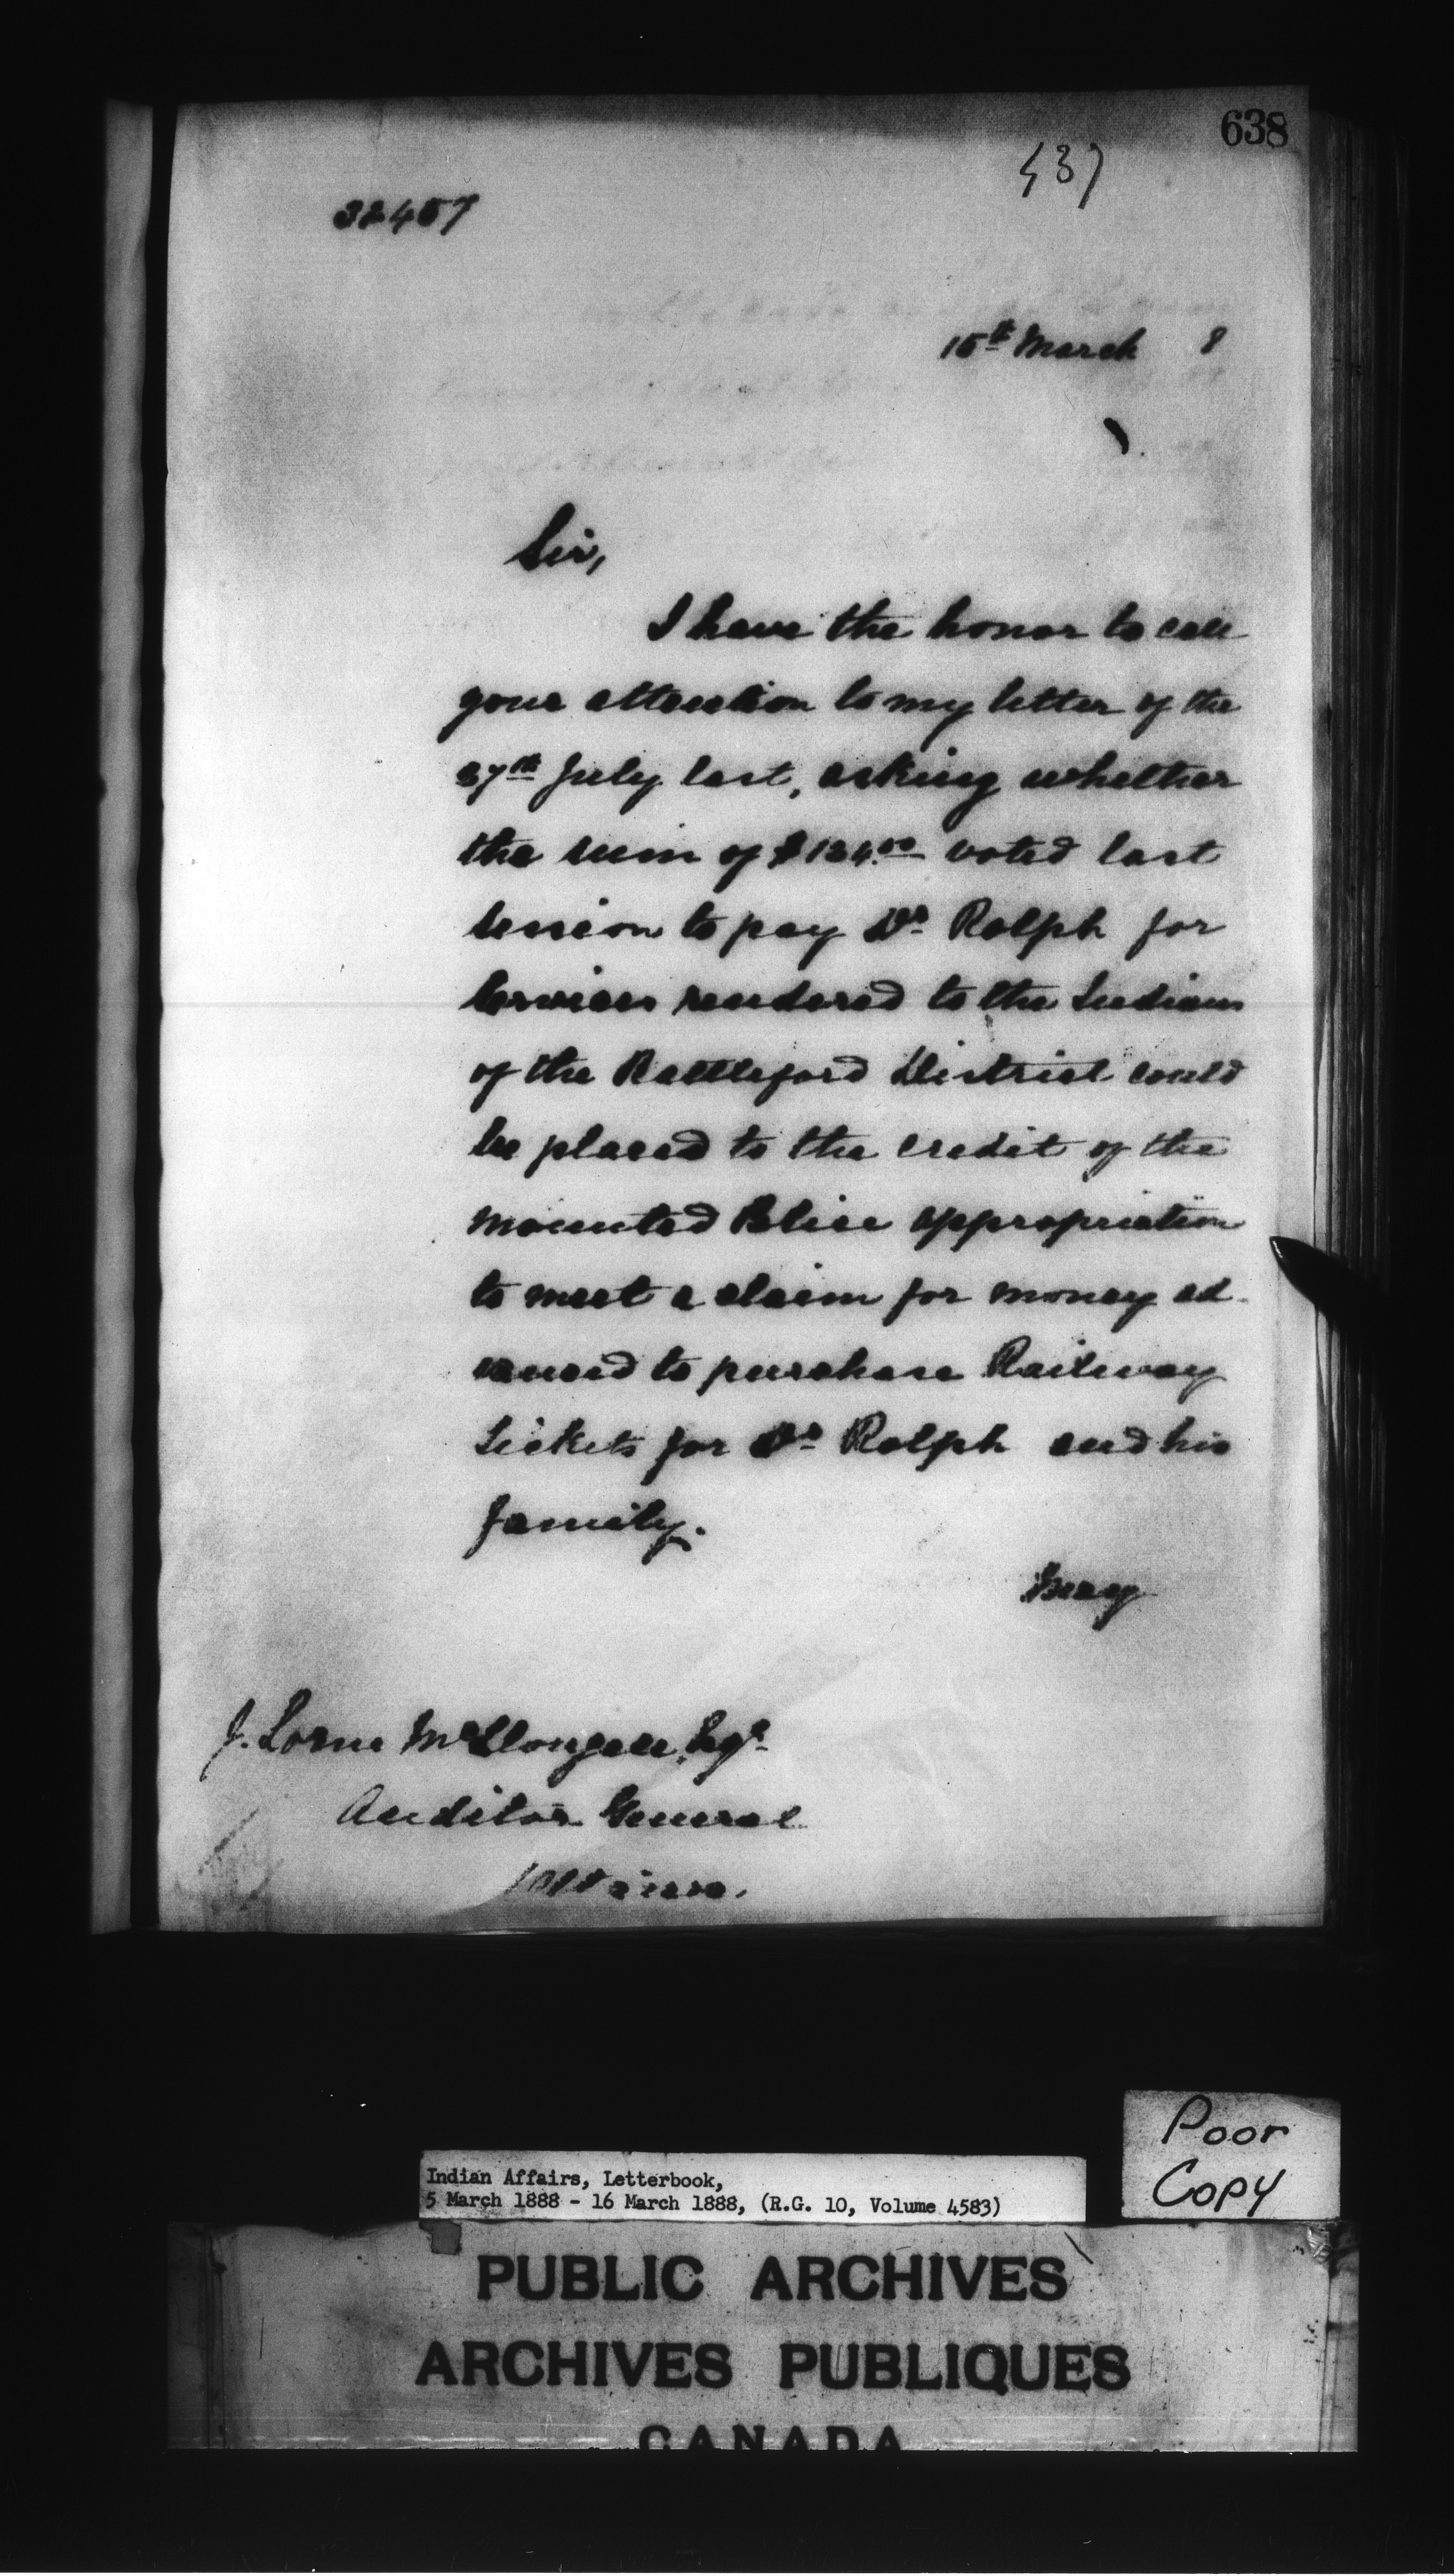 638
437
32457
15th March 8
Sir,
I have the honor to call
your attention to my letter of the
27th July last, asking whether
the sum of $124.00 voted last
session to pay Dr Rolph for
services rendered to the Indians
of the Battleford District could
be placed to the credit of the
Mounted Police appropriation
to meet a claim for money ad-
vanced to purchase Railway
tickets for Dr Rolph and his
family.
J. Lorne McDougall, Esqr
Auditor General
Ottawa.
Poor
Copy
Indian Affairs, Letterbook,
5 March 1888 - 16 March 1888, (R.G. 10, Volume 4583)
PUBLIC ARCHIVES
ARCHIVES PUBLIQUES
CANADA